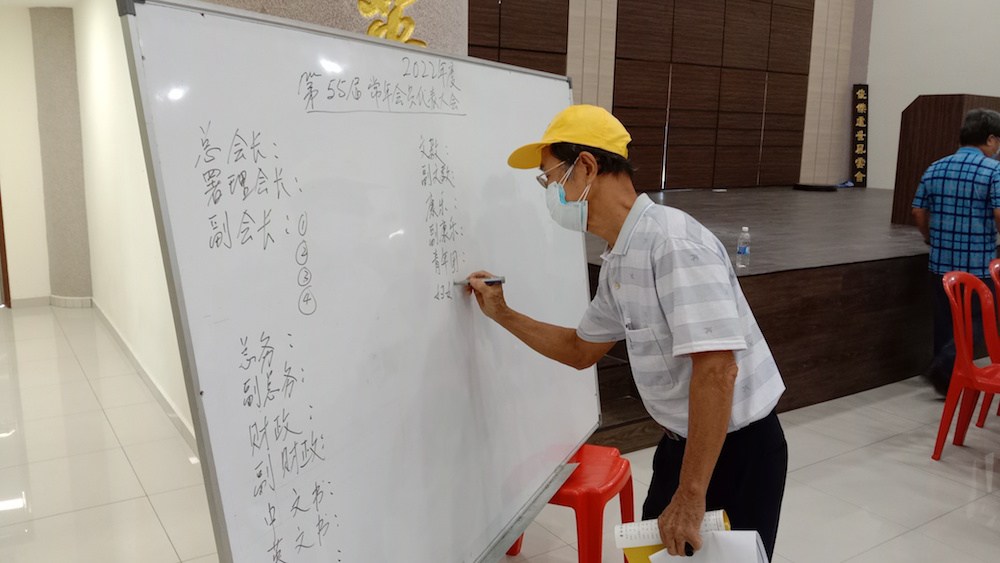 2022年度
第55届常年会员代表大会
总会长：
署理会长：
副会长：①
②
③
④
总务：
副总务：
财政：
副财政：
中文书：
英文书：
文教：
副文教：
康乐：
副康乐：
青年团：
妇女